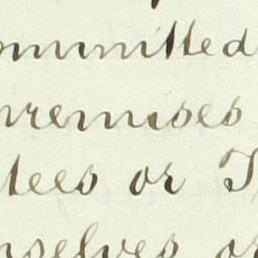 ommitted
premises
tees or T
mselves or